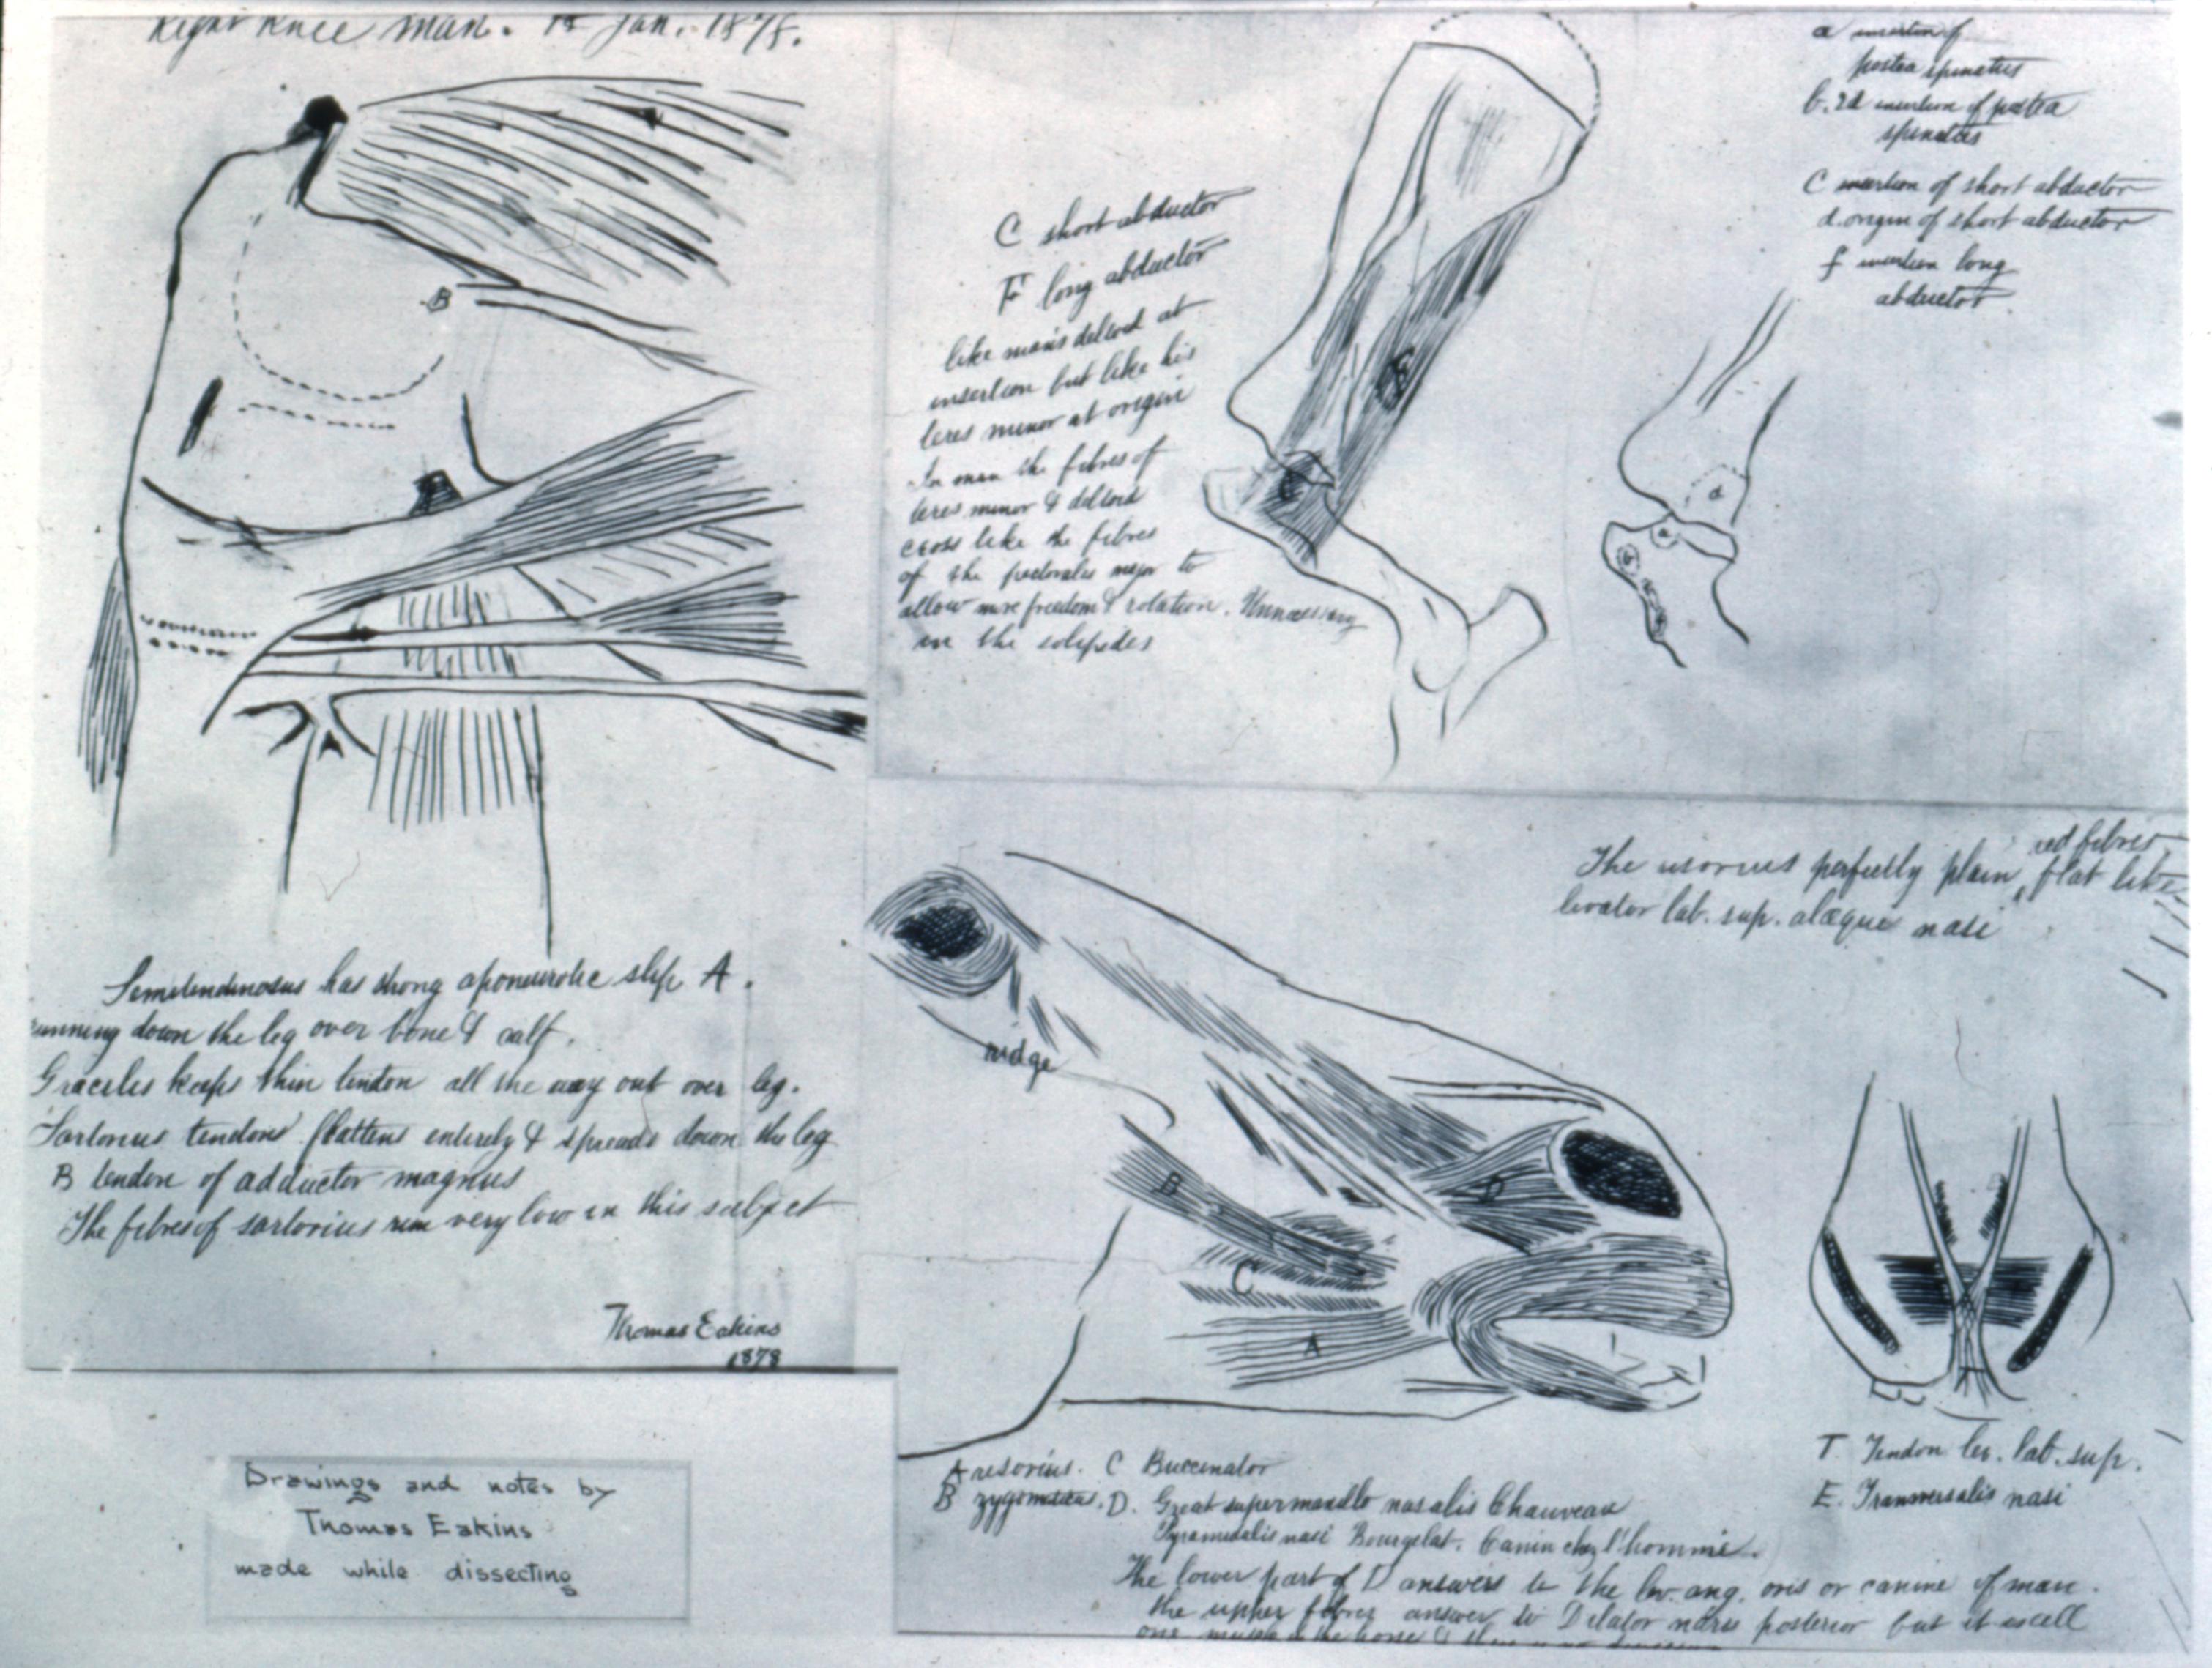 Right Knee Man. 1st Jan. 1878.
B
Semitendinosus has strong aponeurotic slip A.
running down the leg over bone & calf.
Gracilis keeps thin tendon all the way out over leg.
Sartorius tendons flattens entirely & spreads down the leg
B tendon of adductor magnus
The fibres of sartorius run very low in this subject
Thomas Eakins
1878
Drawings and notes by
Thomas Eakins
made while dissecting
C short abductor
F long abductor
like man's deltoid at
insertion but like his
teres minor at origin
In man the fibres of
teres minor & deltoid
cross like the fibres
of the pectoralis major to
allow more freedom & rotation. Unnecessary
in the solipedes
F
C
a insertion of
postea spinatus
b. 2d insertion of postea
spinatus
C insertion of short abductor
d. origin of short abductor
f insertion long
abductor
d
a
b
The risorius perfectly plain, red fibres, flat like
levator lab. sup. alæque nasi
ridge
B
D
C
A
T
A risorius. C Buccinator
B zygomaticus. D. Great supermaxillo nasalis Chauveau
Pyramidalis nasi Bourgelat. Canin chez l'homme.
The lower part of D answers to the lev. ang. oris or canine of man.
the upper fibres answer to Dilator naris posterior but it is all
one muscle in the horse & there is no
T. Tendon lev. lab. sup.
E. Transversalis nasi